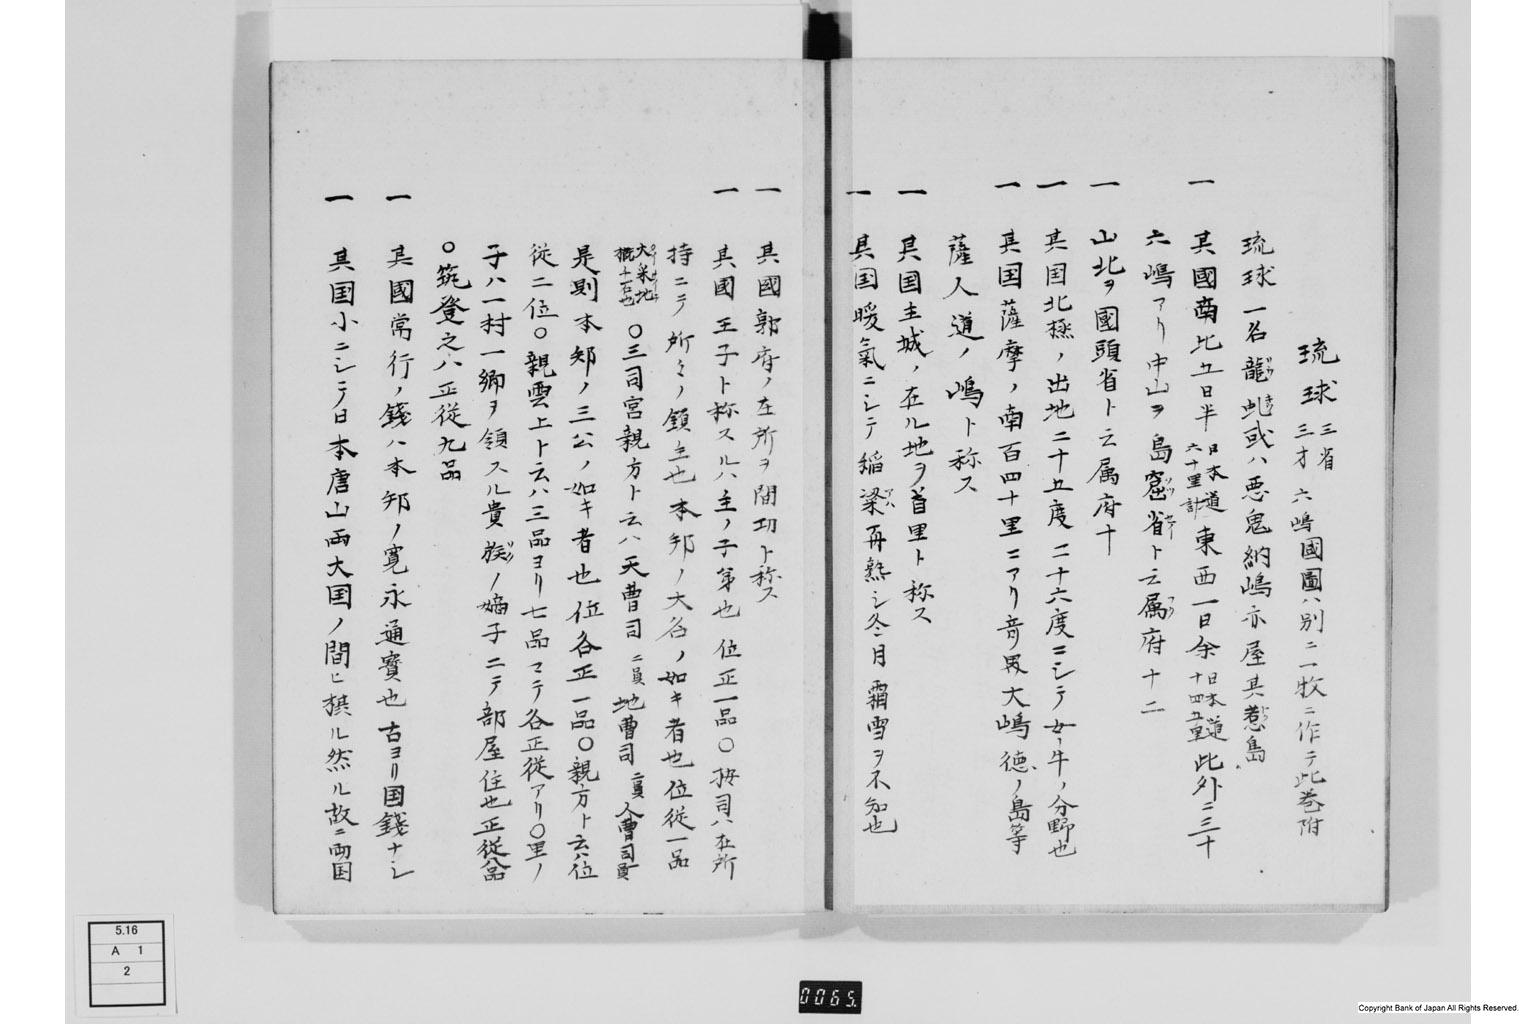 琉球 三省 三才 六嶋國圖ハ別ニ二枚ニ作テ此巻附
琉球一名龍虬或ハ悪鬼納嶋亦屋其惹島
一 其國南北五日半 日本道六十里計 東西一日余 日本道十四五里 此外ニ三十
六嶋アリ中山ヲ島窟省ト云属府十二
一 山北ヲ國頭省ト云属府十
一 其国北極ノ出地二十五度二十六度ニシテ女牛ノ分野也
一 其国薩摩ノ南百四十里ニアリ奇界大嶋徳ノ島等
薩人道ノ嶋ト称ス
一 其国主城ノ在ル地ヲ首里ト称ス
一 其国暖氣ニシテ稲粱再熟シ冬月霜雪ヲ不知也
一 其國郭府ノ在所ヲ間切ト称ス
一 其國王子ト称スルハ主ノ子第也位正一品〇按司ハ在所
持ニテ所々ノ領主也本邦ノ大名ノ如キ者也位従一品
大米地 概十石也 〇三司宮親方ト云ハ天曹司 二員 地曹司 二員 人曹司 員
是則本邦ノ三公ノ如キ者也位各正一品〇親方ト云ハ位
従二位〇親雲上ト云ハ三品ヨリ七品マテ各正従アリ〇里ノ
子ハ一村一郷ヲ領スル貴族ノ嫡子ニテ部屋住也正従八品
〇筑登之ハ正従九品
一 其國常行ノ錢ハ本邦ノ寛永通寳也古ヨリ国錢ナシ
一 其国小ニシテ日本唐山両大国ノ間ヒ挟ル然ル故ニ両国
5.16
A 1
2
0065.
Copyright Bank of Japan All Rights Reserved.